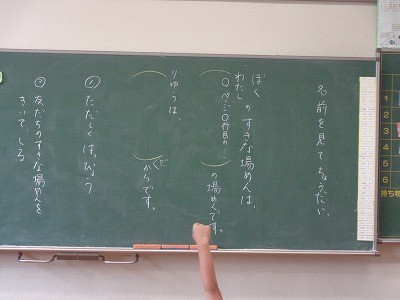 名前を見てちょうだい
ぼく
わたし
のすきな場めんは、
○ページ○行目の
の場めんです。
りゆうは
だ
からです。
① ただしくはっぴょう
② 友だちのすきな場めんを
きいてしる
1
2
3
4
5
6
持ち物